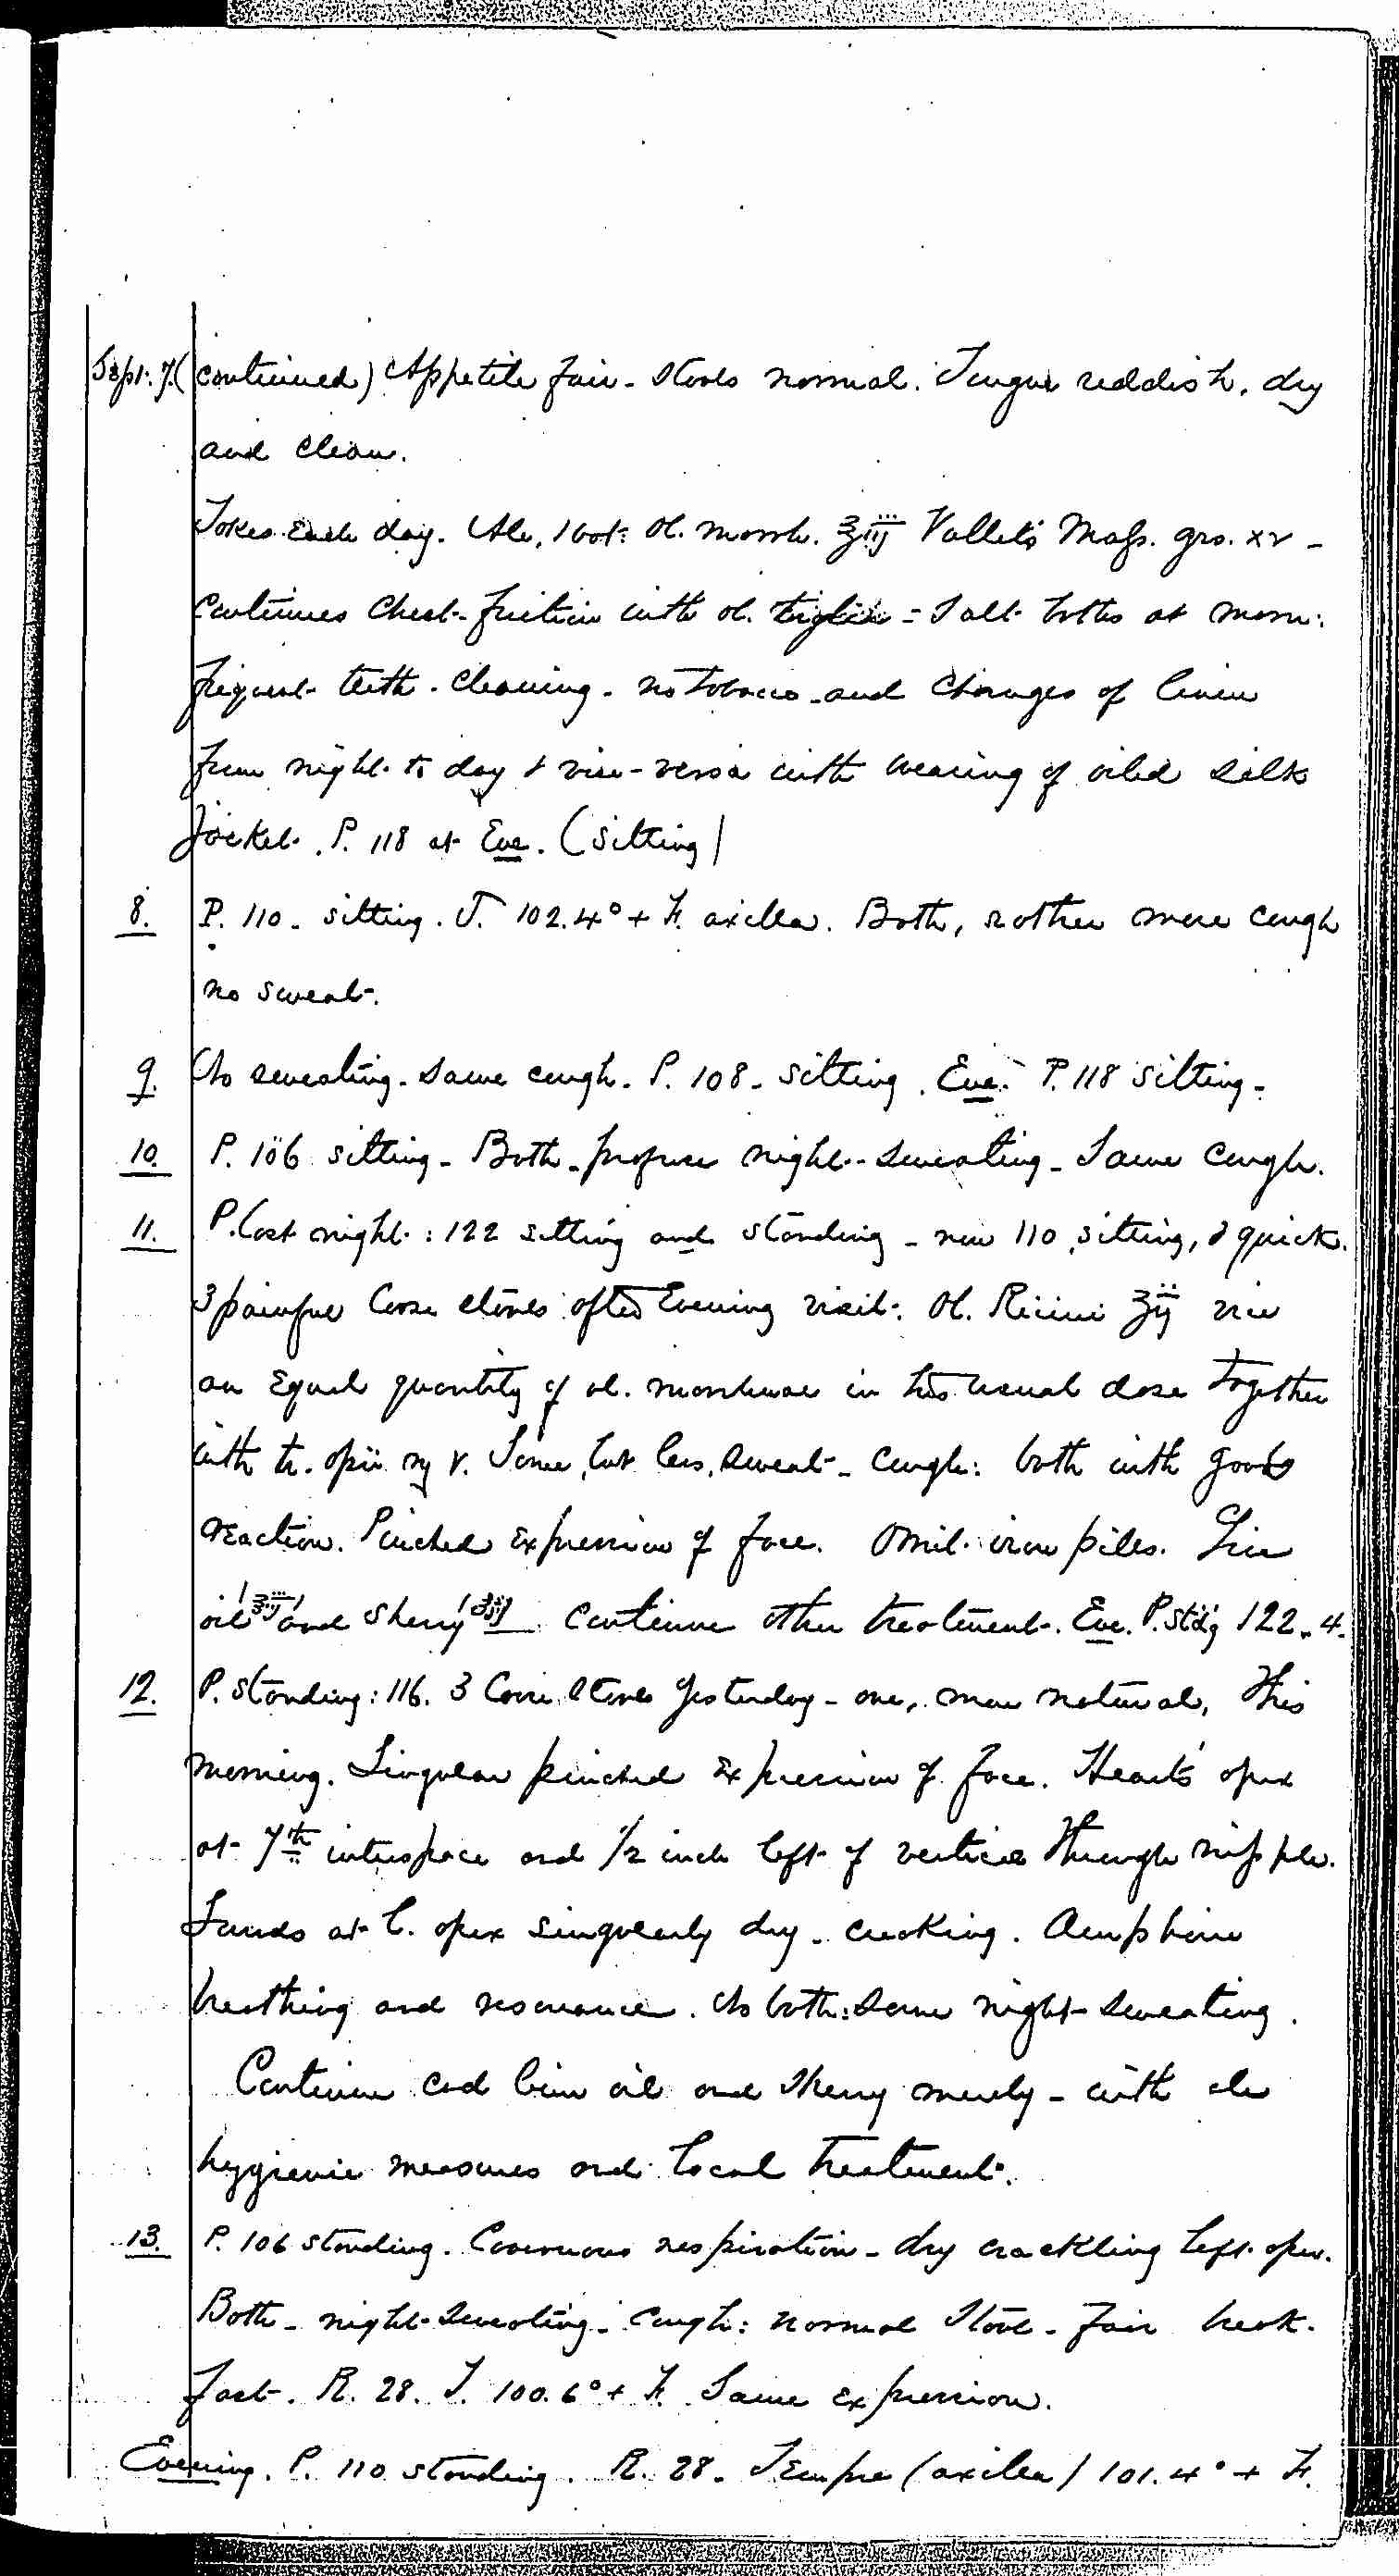 Sept. 7. (continued) Appetite fair - Stools normal. Tongue reddish, dry
and clean.
Takes each day. Ale, 1 bot: Ol. morrh. ℥iij Vallet's Mass. grs. xv -
Continues Chest-friction with ol. tiglii - Salt baths at morn:
frequent teeth-cleaning - no tobacco - and changes of linen
from night to day & vice-versa with wearing of oiled silk
Jacket. P. 118 at Eve. (Sitting)
8. P. 110 - sitting. T. 102.4° + F. axilla. Bath, rather more cough
no sweat.
9. No sweating. Same cough. P. 108 - sitting. Eve. P. 118 sitting -
10. P. 106 sitting - Bath - profuse night-sweating - Same cough.
11. P. last night: 122 sitting and standing - now 110, sitting, & quick.
3 painful loose stools after Evening visit: Ol. Ricini ℥ij vice
an Equal quantity of ol. morrhuae in his usual dose together
with tr. opii ♏ v. Some, but less, sweat - cough: bath with good
reaction. Pinched expression of face. Omit iron pills. Give
oil (℥iij) and Sherry Continue other treatment. Eve. P. Stdg 122.4.
12. P. standing: 116. 3 loose stools yesterday - one, more natural, this
morning. Singular pinched expression of face. Heart's apex
at 7th interspace and 1/2 inch left of vertical through nipple.
Sounds at L. apex singularly dry - creaking. Amphoric
breathing and resonance. No bath: Same night-sweating.
Continue cod liver oil and Sherry merely - with ale
hygienic measures and local treatment.
13. P. 106 standing. Cavernous respiration - dry crackling left apex.
Bath - night-sweating - cough: normal stool - fair break-
fast. R. 28. T. 100.6° + F. Same expression.
Evening. P. 110 standing. R. 28. Tempre (axilla) 101.4° + F.